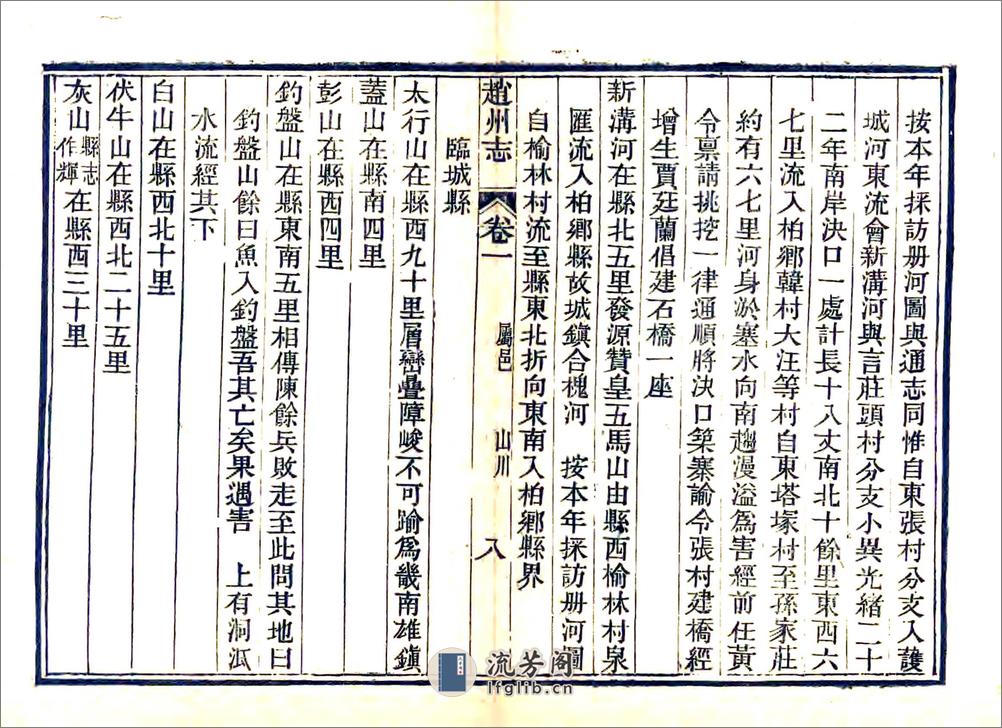 按本年採訪册河圖與通志同惟自東張村分支入護
城河東流會新溝河與言莊頭村分支小異光緒二十
二年南岸決口一處計長十八丈南北十餘里東西六
七里流入柏鄉韓村大汪等村自東塔塚村至孫家莊
約有六七里河身淤塞水向南趨漫溢爲害經前任黃
令禀請挑挖一律通順將決口築寨諭令張村建橋經
增生賈廷蘭倡建石橋一座
新溝河在縣北五里發源贊皇五馬山由縣西榆林村泉
匯流入柏鄉縣故城鎮合槐河　按本年採訪册河圖
自榆林村流至縣東北折向東南入柏鄉縣界
趙州志　卷一　屬邑　山川　八
臨城縣
太行山在縣西九十里層巒疊障峻不可踰爲畿南雄鎮
蓋山在縣南四里
彭山在縣西四里
釣盤山在縣東南五里相傳陳餘兵敗走至此問其地曰
釣盤山餘曰魚入釣盤吾其亡矣果遇害　上有洞泒
水流經其下
白山在縣西北十里
伏牛山在縣西北二十五里
灰山縣志作輝在縣西三十里
流芳阁
lfglib.cn